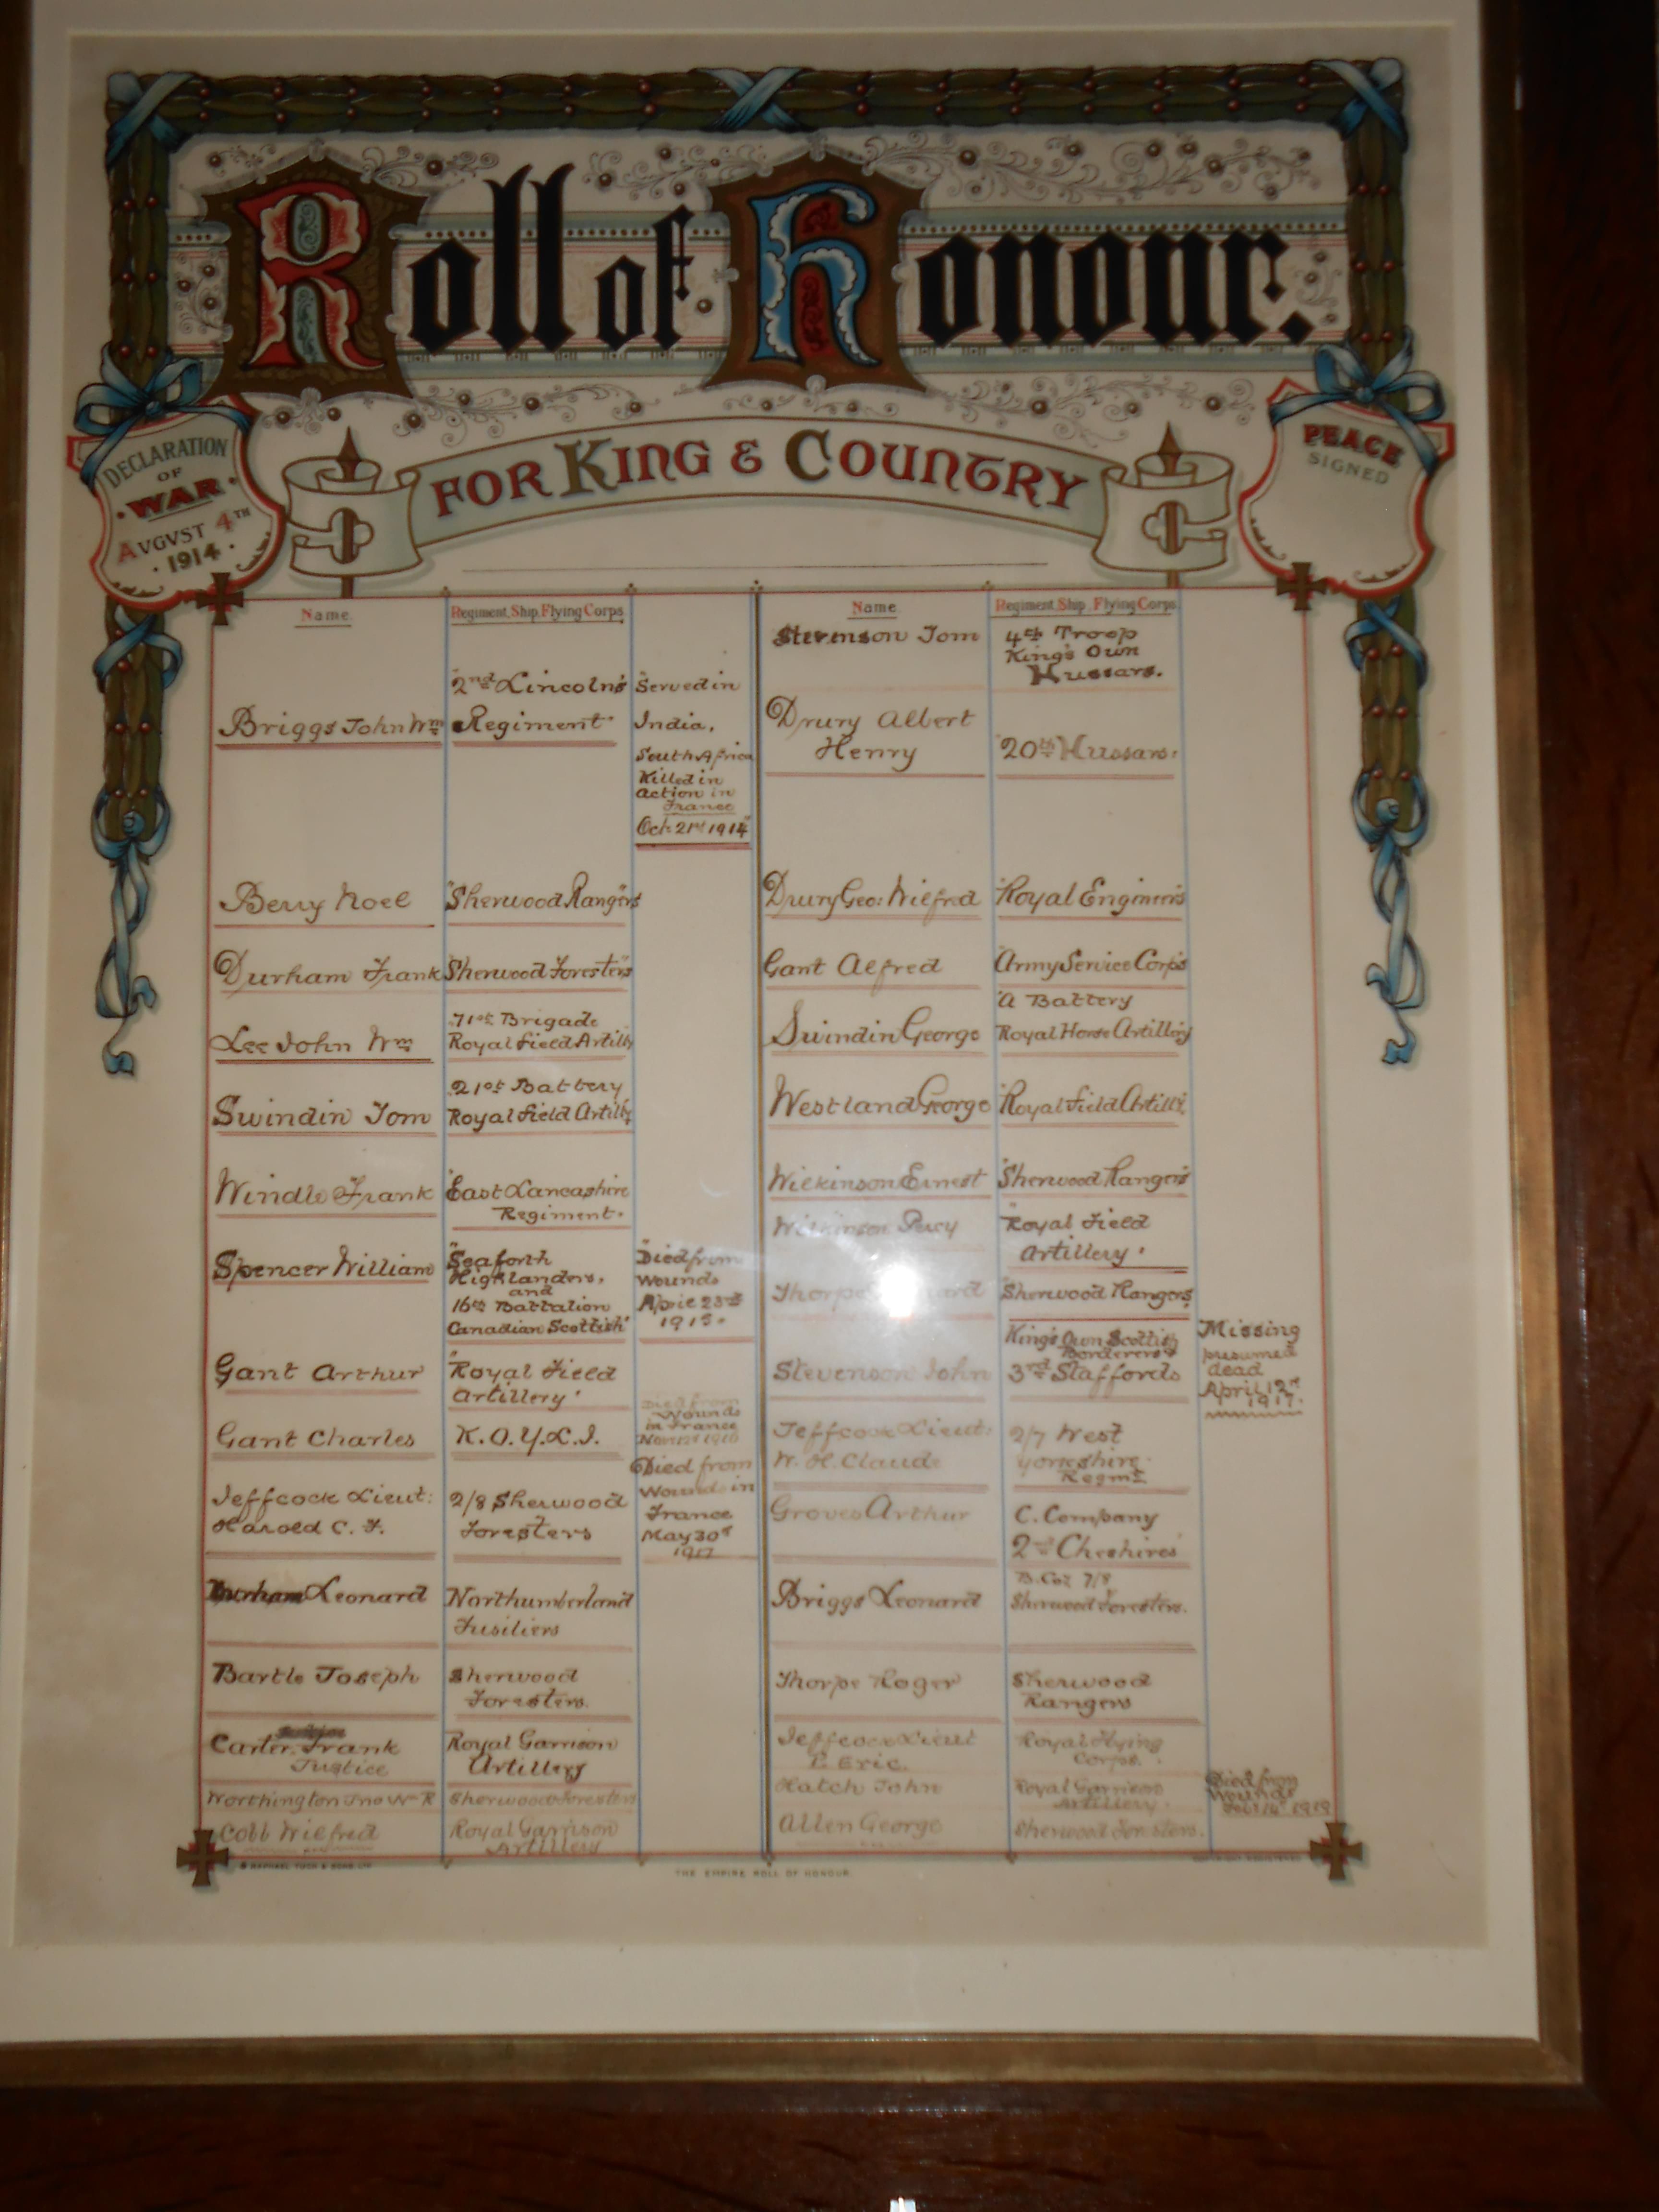 Roll of Honour.
FOR KING & COUNTRY
DECLARATION
OF
WAR.
AVGVST 4TH
1914
PEACE
SIGNED
Name. Regiment, Ship, Flying Corps.
2nd Lincoln's
Briggs John Wm Regiment
"Served in
India,
South Africa
Killed in
action in
France
Oct: 21st 1914"
Berry Noel "Sherwood Rangers"
Durham Frank "Sherwood Foresters"
Lee John Wm 71st Brigade
Royal Field Artill'y
Swindin Tom 21st Battery
Royal Field Artill'y
Windle Frank East Lancashire
Regiment.
Spencer William "Seaforth
Highlanders,
and
16th Battalion
Canadian Scottish"
"Died from
Wounds
April 23rd
Gant Arthur "Royal Field
Artillery"
Gant Charles K.O.Y.L.I.
Died from
Wounds
in France
1916
Jeffcock Lieut:
Harold C. F.
2/8 Sherwood
Foresters
Died from
Wounds in
France
May 30th
1917
Durham Leonard Northumberland
Fusiliers
Bartle Joseph Sherwood
Foresters.
Carter. Frank
Justice
Royal Garrison
Artillery
Worthington Jno Wm R Sherwood Foresters
Cobb Wilfred Royal Garrison
Artillery
Name. Regiment, Ship, Flying Corps.
Stevenson Tom 4th Troop
King's Own
Hussars.
Drury Albert
Henry
20th Hussars.
Drury Geo: Wilfred "Royal Engineers"
Gant Alfred "Army Service Corps"
Swindin George "A Battery
Royal Horse Artillery
Westland George "Royal Field Artill'y
Wilkinson Ernest "Sherwood Rangers"
Wilkinson Percy "Royal Field
Artillery"
Thorpe "Sherwood Rangers"
Stevenson John King's Own Scottish
Borderers
3rd Staffords
Missing
presumed
dead
April 12th
1917.
Jeffcock Lieut:
W. H. Claude
2/7 West
Yorkshire
Regmt
Groves Arthur C. Company
2nd Cheshires
Briggs Leonard B. Coy 7/8
Sherwood Foresters.
Thorpe Roger Sherwood
Rangers
Jeffcock Lieut
Eric.
Royal Flying
Corps.
Hatch John Royal Garrison
Artillery.
Died from
Wounds
Allen George Sherwood Foresters.
© RAPHAEL TUCK & SONS, LTD
THE EMPIRE ROLL OF HONOUR.
COPYRIGHT REGISTERED